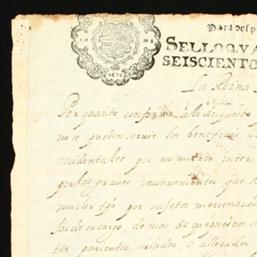 Para desp
SELLO QVA
SEISCIENTO
1676
La Reina
Por quanto conforme a lo dispuesto
no se pueden servir los beneficios
occidentales por num interi
por los graves inconvenientes que
mucho tpo por sujetos mercenarios
de su cargo, de mas de que
parientes, criados, o allegados